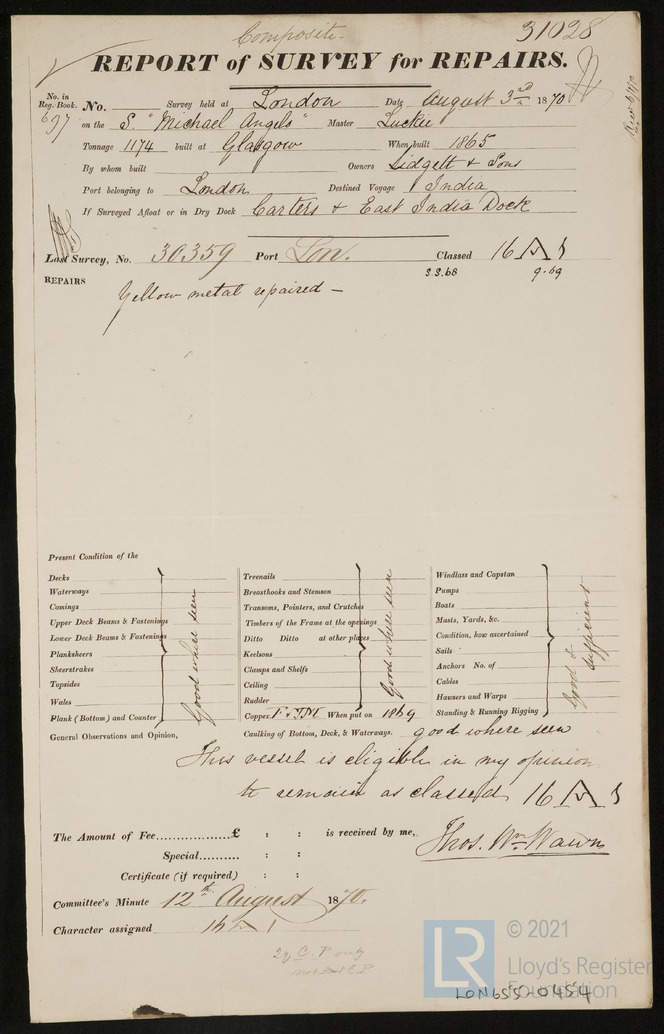 Composite
31028
REPORT of SURVEY for REPAIRS.
No. in Reg. Book.
697
No. Survey held at London Date, August 3rd 1870
on the S. "Michael Angelo" Master Luckie
Tonnage 1174 built at Glasgow When built 1865
By whom built Owners Lidgett & Sons
Port belonging to London Destined Voyage India
If Surveyed Afloat or in Dry Dock Carters & East India Dock
Last Survey, No. 30359 Port Lon. Classed 16 A 1
S.S.68 9.69
REPAIRS
Yellow metal repaired —
Present Condition of the
Decks
Waterways
Comings
Upper Deck Beams & Fastenings
Lower Deck Beams & Fastenings
Planksheers
Sheerstrakes
Topsides
Wales
Plank (Bottom) and Counter
Good where seen
Treenails
Breasthooks and Stemson
Transoms, Pointers, and Crutches
Timbers of the Frame at the openings
Ditto Ditto at other places
Keelsons
Clamps and Shelfs
Ceiling
Rudder
Copper When put on 1869
Good where seen
Windlass and Capstan
Pumps
Boats
Masts, Yards, &c.
Condition, how ascertained
Sails
Anchors No. of
Cables
Hawsers and Warps
Standing & Running Rigging
Good & sufficient
General Observations and Opinion, Caulking of Bottom, Deck, & Waterways. good where seen
This vessel is eligible in my opinion
to remain as classed 16 A 1
The Amount of Fee.................£ : : is received by me,
Special.......... : :
Certificate (if required) : :
Thos. Wm Wawn
Committee's Minute 12th August 1870.
Character assigned 16 A 1
© 2021
LR
Lloyd's Register
Foundation
LON655-0454